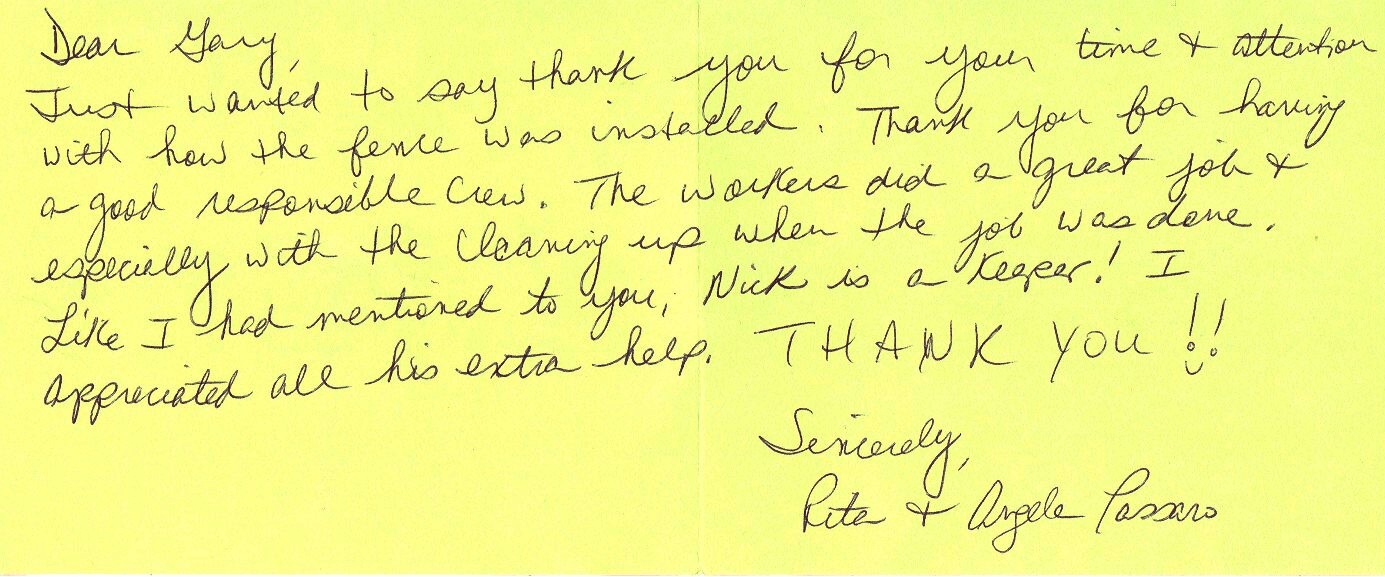 Dear Gary,
Just wanted to say thank you for your time & attention
with how the fence was installed. Thank you for having
a good responsible crew. The workers did a great job &
especially with the cleaning up when the job was done.
Like I had mentioned to you, Nick is a Keeper! I
appreciated all his extra help. THANK YOU!!
Sincerely,
Rita & Angela Passaro